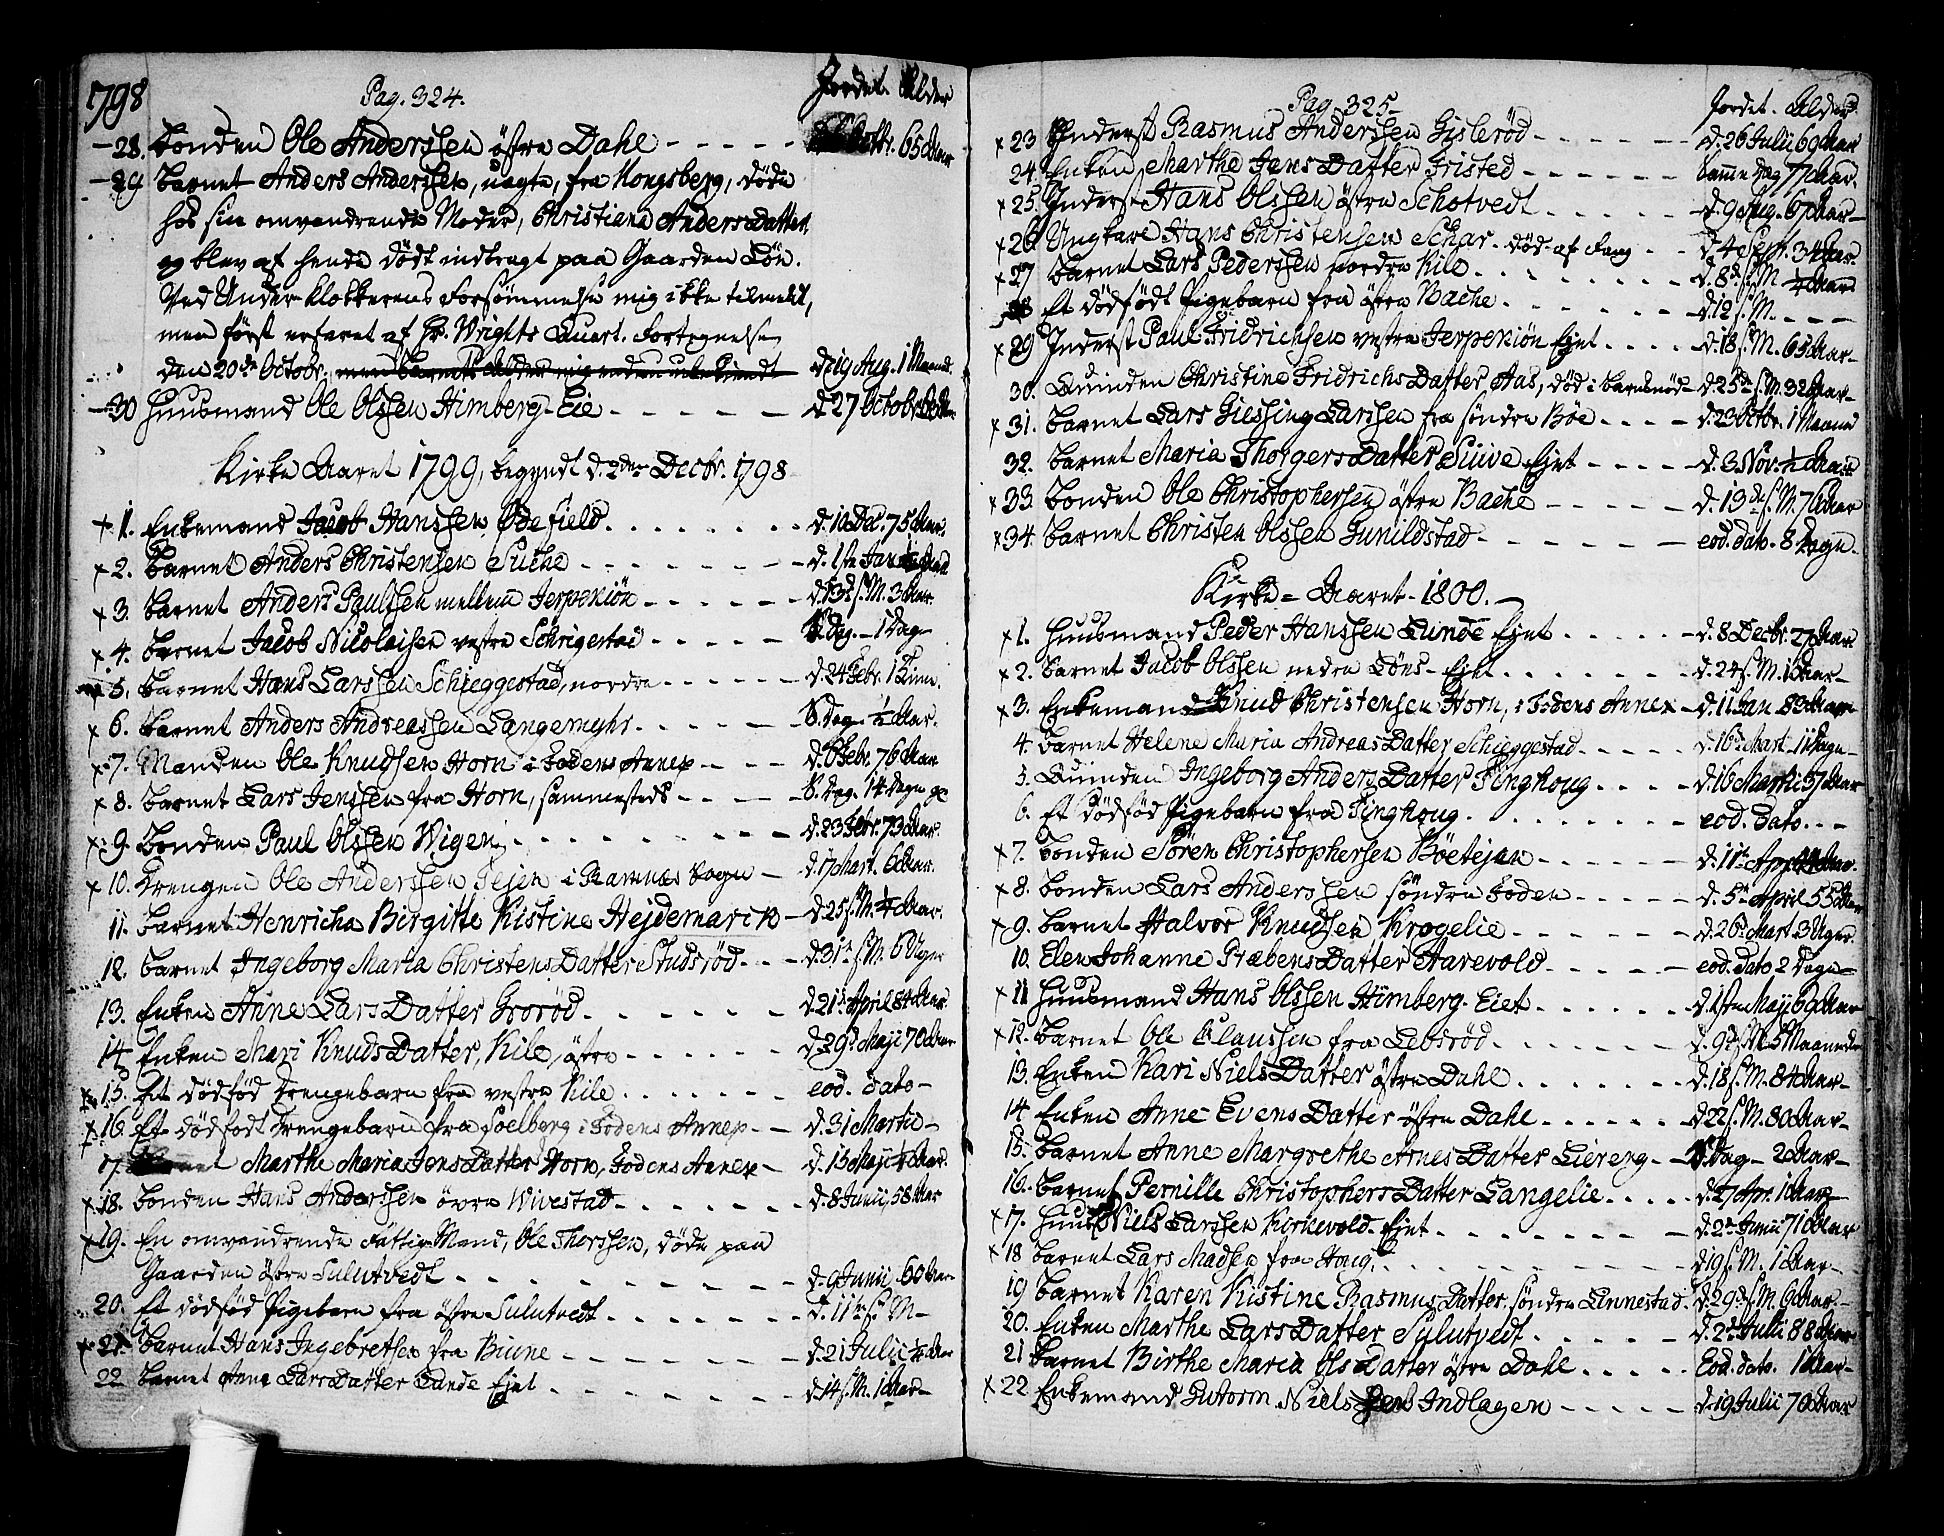 1798
Pag. 324.
Jordet. Alder
28. Bonden Ole Anderssen östre Dahl - - - - - Octbr. 65 Aar
29 Barnet Anders Anderssen, uægte, fra Kongsberg, döde
hos sin omvandrende Moder, Christiana Anders Datter,
og blev af hende dödt indbragt paa Gaarden Lön.
Ved Under-Klokkerens Forsömmelse mig ikke tilmeldt,
men först erfaret af Hr. Wrights Quart. Fortegnelse
den 20de Octobr. d. 19 Aug. 1 Maaned
30 Huusmand Ole Olssen Himberg-Eie - - - - - d. 27 Octobr.
Kirke Aaret 1799, begyndt d. 2den Decbr. 1798
x 1. Enkemand Jacob Hanssen Ödefield . . . . . d. 10 Dec. 75 Aar.
x 2. Barnet Anders Christensen Suche - - - - - d. 1ste Jan.
x 3. Barnet Anders Paulssen mellem Jerpekiön - - - - d. 13de s. M. 3 Aar.
x 4. Barnet Jacob Nicolaisen vestre Schrigestad - - - - S. Dag. - 1 Dag
5. Barnet Hans Larssen Schieggestad, nordre - - - - d. 24 Febr. 1 Time.
x 6. Barnet Anders Andreassen Langemyhr. - - - - S. Dag ½ Aar.
x 7. Manden Ole Knudsen Horn i Fodens Annex - - - d. Febr. 76 Aar
x 8. Barnet Lars Jenssen fra Horn, sammesteds - - - - S. Dag. 14 Dage
x 9. Bonden Paul Olssen Wigen . . . . . d. 23 Febr. 73 Aar.
x 10. Drengen Ole Anderssen Tejen i Ramnæs Sogn - d. 17 Mart. 6 Aar.
11. Barnet Henricha Birgitte Kistine Hejdemarck - d. 25 s. M. ¼ Aar.
12. Barnet Ingeborg Maria Christens Datter Studsröd - - - d. 31te s. M. 6 Uger
13. Enken Anne Lars Datter Groröd . . . . . d. 21de April 84 Aar.
14. Enken Mari Knuds Datter, Kile, östre - - - - - d. 29de Maji 70 Aar
15. Et dödföd Drengebarn fra vestre Kile . . . . . eod. dato -
x 16. Et dödfödt Drengebarn fra Soelberg i Fodens Annex - - d. 31 Martii -
17. Barnet Marthe Maria Jens Datter Horn, Fodens Annex - d. 15 Maji Aar.
x 18. Bonden Hans Anderssen övre Wivestad - - - - - d. 8 Junii, 58 Aar
x 19. En omvandrende Fattig Mand, Ole Thorssen, döde paa
Gaarden östre Sulutvedt . . . . . d. 9 Junii 60 Aar
20. Et dödföd Pigebarn fra östre Sulutvedt . . . . . d. 11te s. M -
x 21. Barnet Hans Ingebretsen fra Biune - - - - - d. 21 Julii Aar
22 Barnet Anne Lars Datter Lunde Ejet - - - - - d. 14 s. M. 1 Aar -
Pag. 325
Jordet. Alder
x 23 Inderst Rasmus Anderssen Gisleröd - - - - - d. 26 Julii 69 Aar
24. Enken Marthe Jens Datter Gristed - - - - - Samme Dag 77 Aar.
x 25. Inderst Hans Olssen östre Schotvedt . . . . . d. 9 Aug. 67 Aar -
x 26. Ungkarl Hans Christensen Schar. död af Fang - - d. 4 Sept. 34 Aar.
x 27 Barnet Lars Pederssen nordre Kile . . . . . d. 8de s. M Aar
28 Et dödfödt Pigebarn fra östre Bache . . . . . d. 12 s. M. - - -
x 29 Inderst Paul Fridrichsen vestre Jerpekiön Ejet . . . . d. 18 s. M. 65 Aar -
30. Quinden Christine Fridrichs Datter Aas, död i Barnsnöd - d. 25de s. M. 32 Aar -
x 31. Barnet Lars Giessing Larssen fra söndre Böe . . . . d. 23 Octbr. 1 Maaned
32. Barnet Maria Thorgers Datter Siuve Ejet - - - - d. 3 Nov. Aar
x 33. Bonden Ole Christophersen östre Bache - - - - - d. 13de s. M. 76 Aar
x 34. Barnet Christen Olssen Gunildstad - - - - - eod. dato. 8 Dage.
Kirke-Aaret-1800.
x 1. Huusmand Peder Hanssen Lunde Ejet . . . . . d. 8 Decbr. 27 Aar
x 2. Barnet Jacob Olssen nedre Löns-Ejet . . . . . d. 24 s. M. 1 Aar -
x 3. Enkemand Knud Christensen Horn, i Fodens Annex - d. 11 Jan 83 Aar
4. Barnet Helene Maria Andreas Datter Schieggestad - - - - d. 16de Mart. 11 Dage -
5. Quinden Ingeborg Anders Datter Tinghoug . . . . d. 16 Martii 37 Aar
6. Et dödföd Pigebarn fra Tinghoug . . . . . eod. dato. - -
x 7. Bonden Sören Christophersen Böetejen - - - - - d. 11te April Aar.
x 8. Bonden Lars Anderssen söndre Foden - - - - - d. 5te April 55 Aar
x 9. Barnet Halvor Knudsen Krogelie - - - - - d. 26de Mart 3 Uger.
10. Elen Johanne Præbens Datter Harevold - - - - - eod. dato 2 Dage -
x 11 Huusmand Hans Olssen Himberg-Eiet . . . . . d. 1ste Maji 69 Aar
x 12. Barnet Ole Claussen fra Lebsröd . . . . . d. 9de s. M. 5 Maaneder
13. Enken Kari Niels Datter östre Dahl . . . . . d. 18 s. M. 84 Aar -
14. Enken Anne Evens Datter östre Dahl . . . . . d. 22 s. M. 80 Aar -
15. Barnet Anne Margrethe Arnes Datter Liereng - - S. Dag - 2 Aar -
16. Barnet Pernille Christophers Datter Langelie . . . . d. 27 Apr. 1 Aar -
x 17. Huus. Niels Larssen Kirkevold-Ejet . . . . . d. 2de Junii 71 Aar
x 18 Barnet Lars Madsen fra Houg . . . . . d. 19 s. M. 1 Aar -
19 Barnet Karen Kistine Rasmus Datter, söndre Linnestad. d. 29de s. M. 6 Aar -
20. Enken Marthe Lars Datter Sulutvedt . . . . . d. 2de Julii 88 Aar
21 Barnet Birthe Maria Ols Datter östre Dahl . . . . . Eod. dato. 1 Aar -
x 22 Enkemand Guttorm Niels Indlagen - - - - - d. 19 Julii 70 Aar